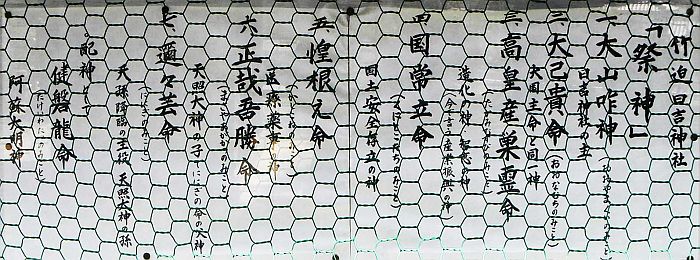 竹迫日吉神社
「祭神」
一、大山咋神
(おおやまくいのみこと)
日吉神社の主
二、大己貴命
(おおなむちのみこと)
大国主命と同一神
三、高皇産巣霊命
造化の神・智恵の神
今で言う産業振興の神
四、国常立命
(くにとこたちのみこと)
国土安全存立の神
五、惶根元命
医療薬事の神
六、正哉吾勝命
(まさやあかつのみこと)
天照大神の子・ににぎの命の父神
七、邇々芸命
(ににぎのみこと)
天孫降臨の主役 天照大神の孫
◦配神として
健磐龍命
(たけいわたつのみこと)
阿蘇大明神